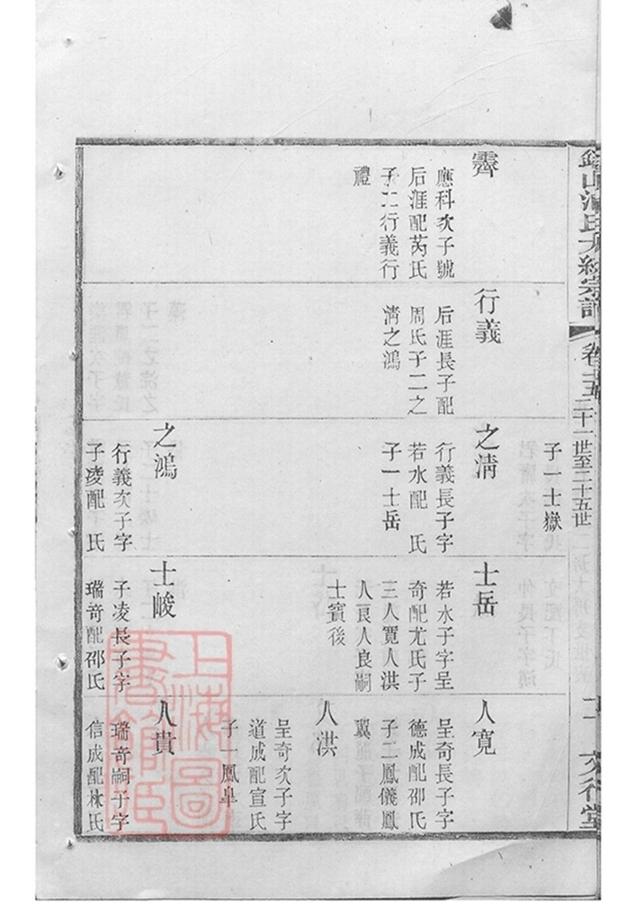 卷十五
二十一世至二十五世
霽
應科次子號
后涯配芮氏
子二行義行
禮
行義
后涯長子配
周氏子二之
淸之鴻
子一士嶽
之淸
行義長子字
若水配 氏
子一士岳
之鴻
行義次子字
子凌配 氏
士岳
若水子字呈
奇配尤氏子
三人寬人洪
人良人良嗣
士賓後
士峻
子凌長子字
瑞奇配邵氏
人寬
呈奇長子字
德成配邵氏
子二鳳儀鳳
翼
人洪
呈奇次子字
道成配宣氏
子一鳳阜
人貴
瑞奇嗣子字
信成配林氏
上海圖
書館藏